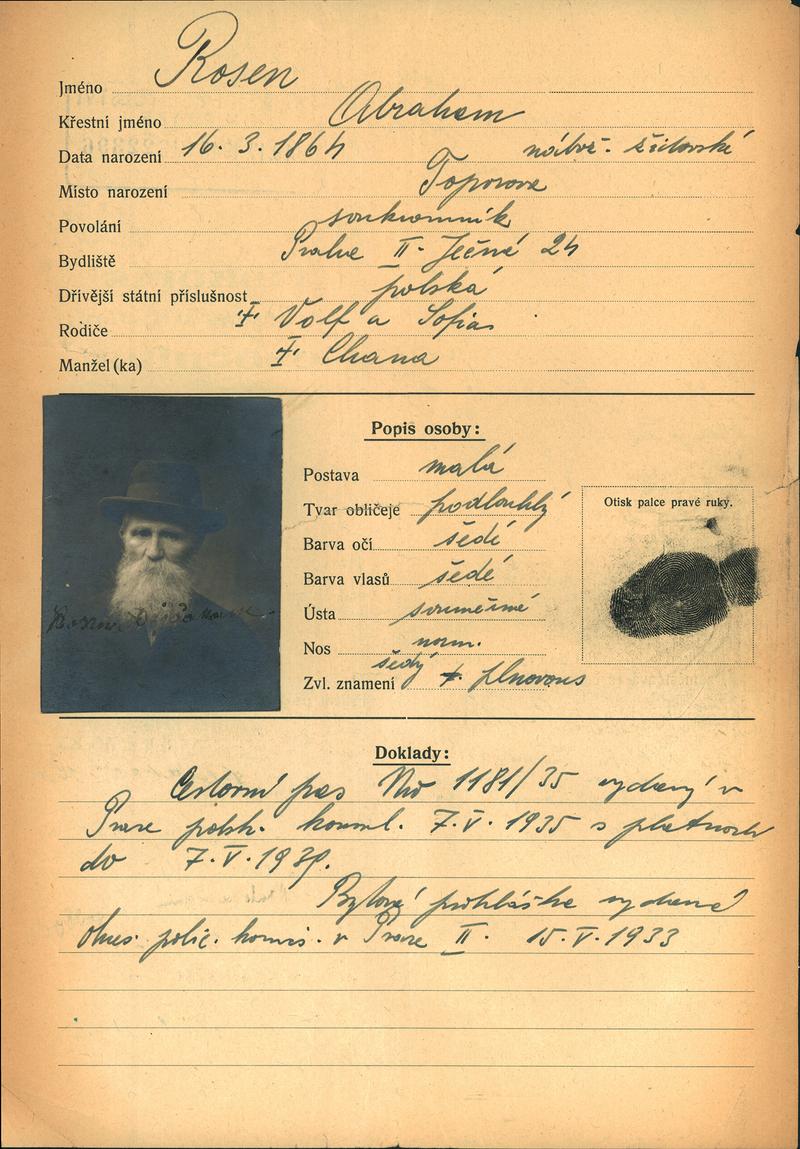 Jméno Rosen
Křestní jméno Abraham
Data narození 16. 3. 1864 nábož. židovské
Místo narození Toporow
Povolání soukromník
Bydliště Praha II. Ječná 24
Dřívější státní příslušnost polská
Rodiče Volf a Sofia
Manžel (ka) Chana
Popis osoby:
Postava malá
Tvar obličeje podlouhlý
Barva očí šedé
Barva vlasů šedé
Ústa souměrné
Nos norm.
Zvl. znamení šedý plnovous
Otisk palce pravé ruky.
Doklady:
Cestovní pas No 1181/35 vydaný v
Praze polsk. konsul. 7. V. 1935 s platností
do 7. V. 1939.
Bytová přihláška vydaná
obvos. polic. komis. v Praze II. 15. V. 1933